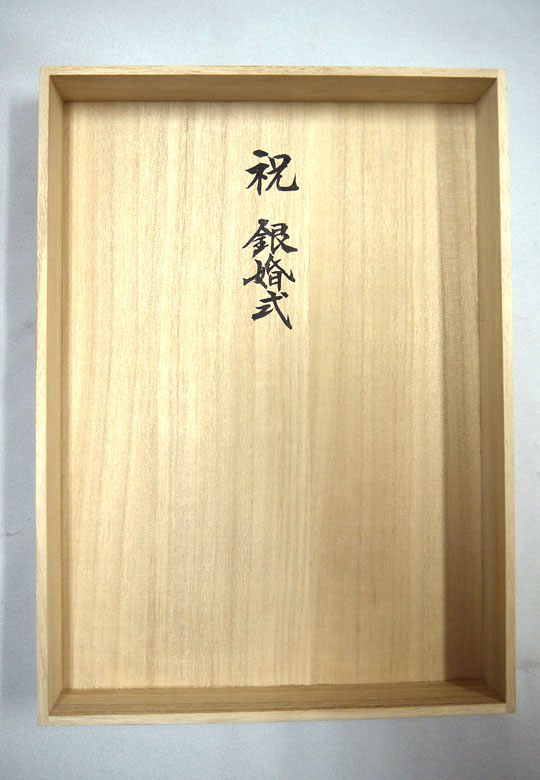 祝 銀婚式